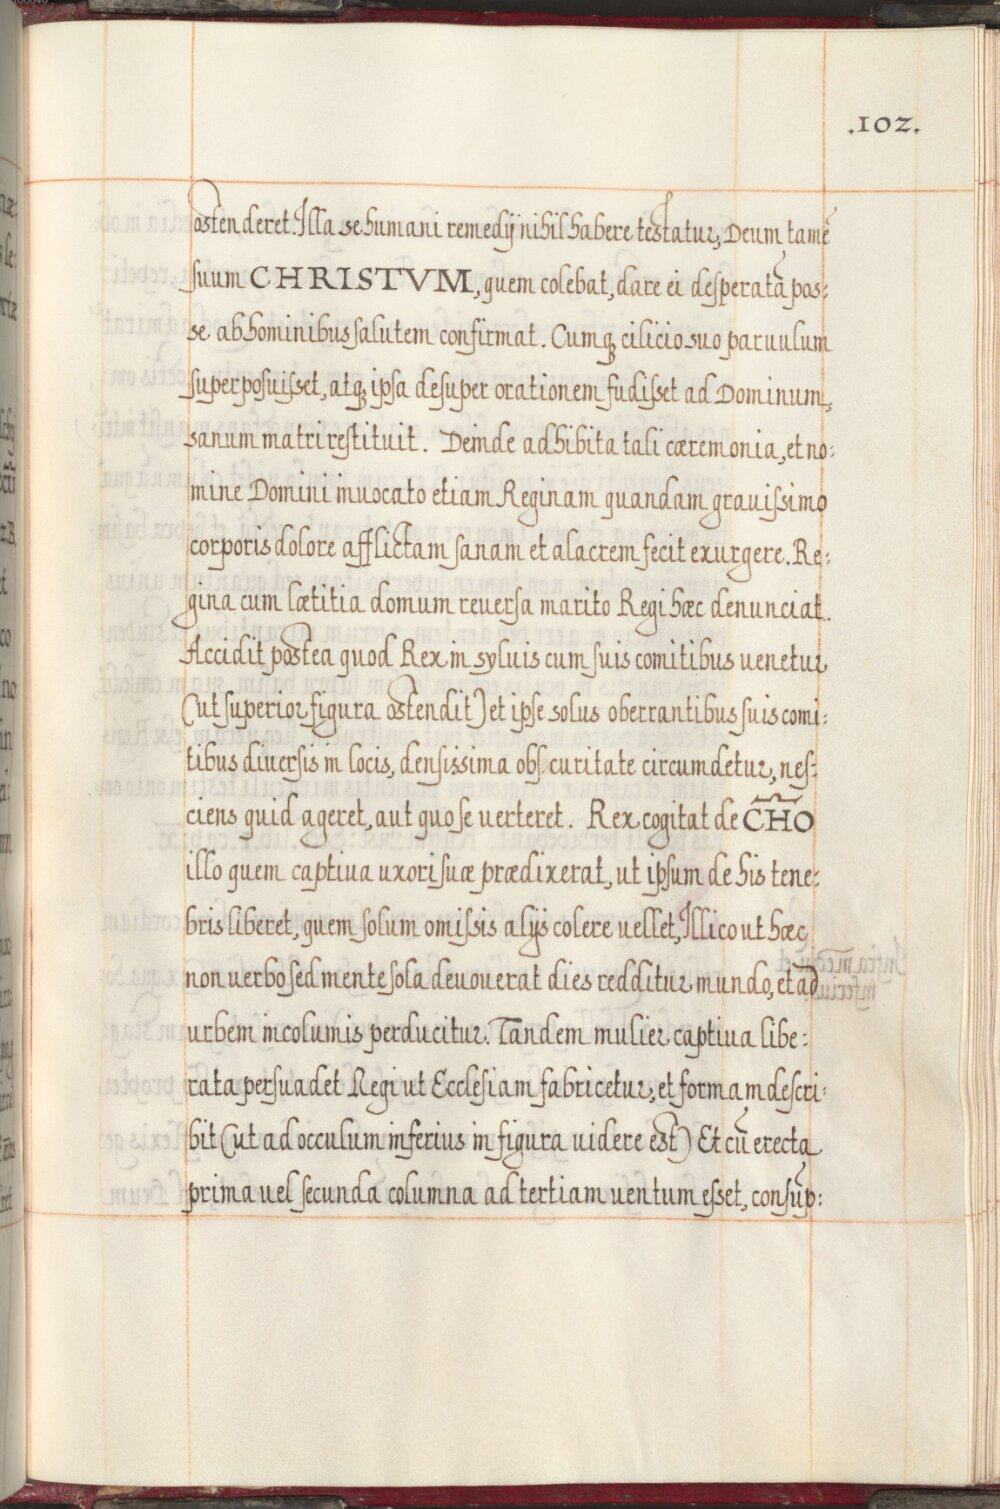 .102.
ostenderet. Illa se humani remedij nihil habere testatur, Deum tamē
suum CHRISTVM, quem colebat, dare ei desperatā pos:
se ab hominibus salutem confirmat. Cumq; cilicio suo paruulum
superposuisset, atq; ipsa desuper orationem fudisset ad Dominum,
sanum matri restituit. Deinde adhibita tali cæremonia, et no:
mine Domini inuocato etiam Reginam quandam grauissimo
corporis dolore afflictam sanam et alacrem fecit exurgere. Re:
gina cum lætitia domum reuersa marito Regi hæc denunciat.
Accidit postea quod Rex in syluis cum suis comitibus uenetur
(ut superior figura ostendit) et ipse solus oberrantibus suis comi:
tibus diuersis in locis, densissima obscuritate circumdetur, nes:
ciens quid ageret, aut quo se uerteret. Rex cogitat de C̃H̃O
illo quem captiua uxori suæ prædixerat, ut ipsum de his tene:
bris liberet, quem solum omissis alijs colere uellet, Illico ut hæc
non uerbo sed mente sola deuouerat dies redditur mundo, et ad
urbem incolumis perducitur. Tandem mulier captiua libe:
rata persuadet Regi ut Ecclesiam fabricetur, et formam descri:
bit (ut ad occulum inferius in figura uidere est) Et cū erecta
prima uel secunda columna ad tertiam uentum esset, consūp: